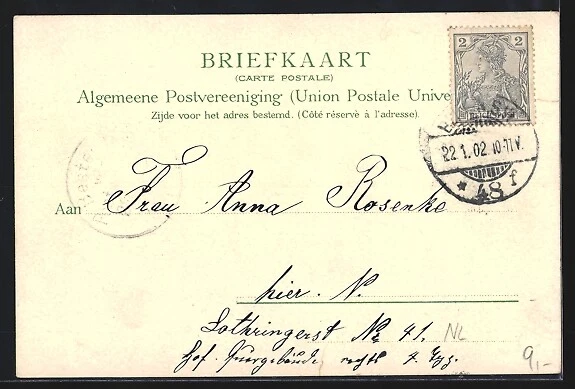 BRIEFKAART
(CARTE POSTALE)
Algemeene Postvereeniging (Union Postale Unive
Zijde voor het adres bestemd. (Côté réservé à l'adresse).
2
REICHSPOST
22 1.02.10-11V.
* 48 f
Aan Frau Anna Rosenke
hier. N.
Lothringerst No 41. NL
Hof. Quergebäude rechts
9,-